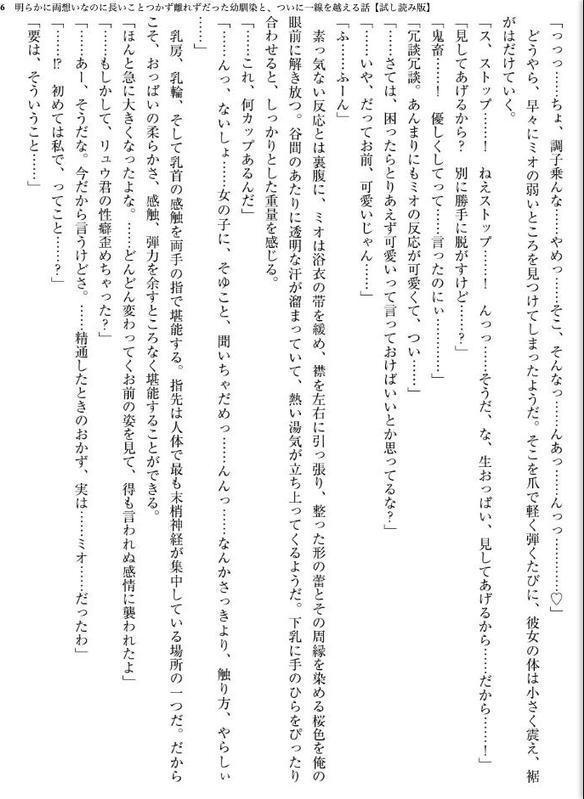 6 明らかに両想いなのに長いことつかず離れずだった幼馴染と、ついに一線を越える話【試し読み版】
「っっっ……ちょ、調子乗んな……やめっ……そこ、そんなっ……んあっ……んっっ…………♡」
　どうやら、早々にミオの弱いところを見つけてしまったようだ。そこを爪で軽く弾くたびに、彼女の体は小さく震え、裾
がはだけていく。
「ス、ストップ……！　ねえストップ……！　んっっ……そうだ、な、生おっぱい、見してあげるから……だから……！」
「見してあげるから？　別に勝手に脱がすけど……？」
「鬼畜……！　優しくしてって……言ったのにぃ………」
「冗談冗談。あんまりにもミオの反応が可愛くて、つい……」
「……さては、困ったらとりあえず可愛いって言っておけばいいとか思ってるな？」
「……いや、だってお前、可愛いじゃん……」
「ふ……ふーん」
　素っ気ない反応とは裏腹に、ミオは浴衣の帯を緩め、襟を左右に引っ張り、整った形の蕾とその周縁を染める桜色を俺の
眼前に解き放つ。谷間のあたりに透明な汗が溜まっていて、熱い湯気が立ち上ってくるようだ。下乳に手のひらをぴったり
合わせると、しっかりとした重量を感じる。
「……これ、何カップあるんだ」
「……んっ、ないしょ……女の子に、そゆこと、聞いちゃだめっ……んんっ……なんかさっきより、触り方、やらしぃ
……」
　乳房、乳輪、そして乳首の感触を両手の指で堪能する。指先は人体で最も末梢神経が集中している場所の一つだ。だから
こそ、おっぱいの柔らかさ、感触、弾力を余すところなく堪能することができる。
「ほんと急に大きくなったよな。……どんどん変わってくお前の姿を見て、得も言われぬ感情に襲われたよ」
「……もしかして、リュウ君の性癖歪めちゃった？」
「……あー、そうだな。今だから言うけどさ。……精通したときのおかず、実は……ミオ……だったわ」
「……!?　初めては私で、ってこと……？」
「要は、そういうこと……」